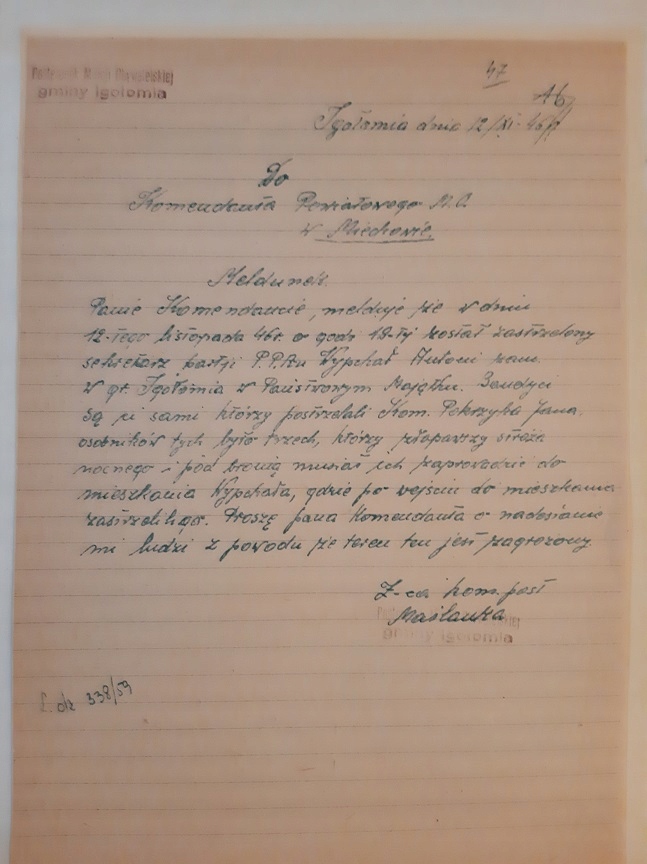 Posterunek Milicji Obywatelskiej
gminy Igołomia
47
46
Igołomia dnia 12/XI. 46 r
Do
Komendanta Powiatowego M.O.
w Miechowie.
Meldunek.
Panie Komendancie, melduję że w dniu
12-tego listopada 46r. o godz 18-tej został zastrzelony
sekretarz partji P.P.R. Wypchał Antoni zam.
w gr. Igołomia w Państwowym Majątku. Bandyci
są ci sami którzy postrzelali Kom. Pokrzyka Jana.
osobników tych było trzech, którzy złapawszy stróża
nocnego i pod bronią musiał ich zaprowadzić do
mieszkania Wypchała, gdzie po wejściu do mieszkania
zastrzelili go. Proszę pana Komendanta o nadesłanie
mi ludzi z powodu że teren ten jest zagrożony.
Z-ca kom. post
Maślanka
gminy Igołomia
L. dz 338/59